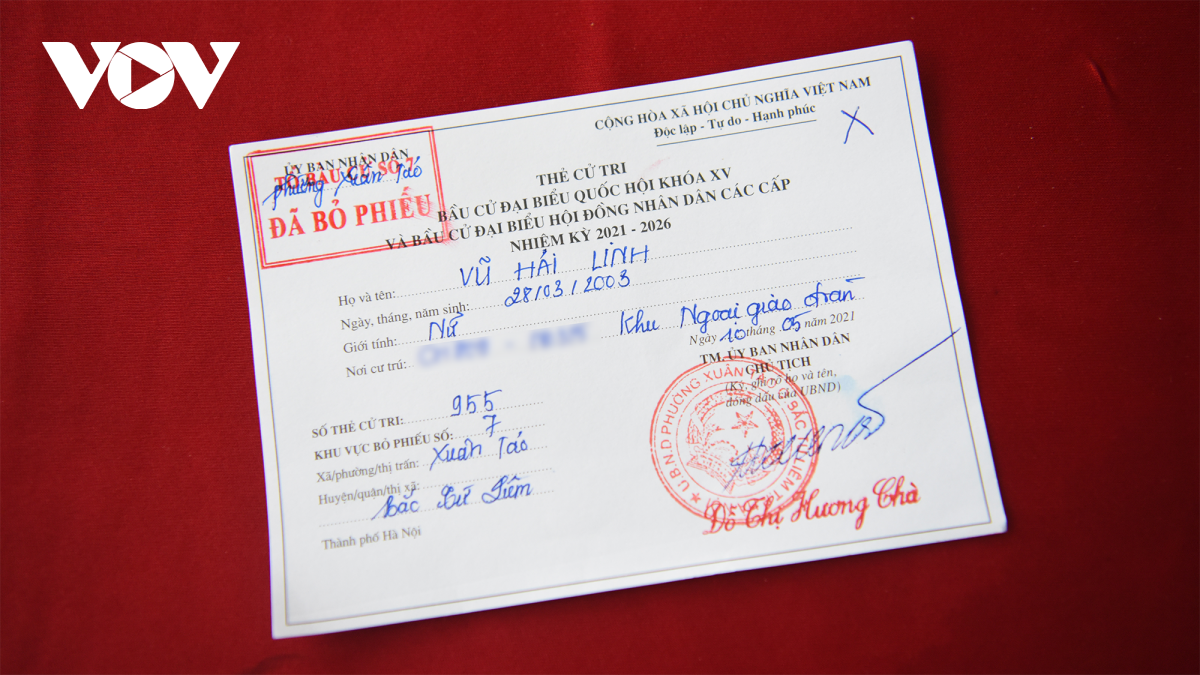 VOV
CỘNG HÒA XÃ HỘI CHỦ NGHĨA VIỆT NAM
Độc lập - Tự do - Hạnh phúc
X
ỦY BAN NHÂN DÂN
phường Xuân Tảo
TỔ BẦU CỬ SỐ 7
ĐÃ BỎ PHIẾU
THẺ CỬ TRI
BẦU CỬ ĐẠI BIỂU QUỐC HỘI KHÓA XV
VÀ BẦU CỬ ĐẠI BIỂU HỘI ĐỒNG NHÂN DÂN CÁC CẤP
NHIỆM KỲ 2021 - 2026
Họ và tên: VŨ HẢI LINH
Ngày, tháng, năm sinh: 28/03/2003
Giới tính: Nữ
Nơi cư trú: Khu Ngoại giao đoàn
Ngày 10 tháng 05 năm 2021
TM. ỦY BAN NHÂN DÂN
CHỦ TỊCH
(Ký, ghi rõ họ và tên,
đóng dấu của UBND)
SỐ THẺ CỬ TRI: 955
KHU VỰC BỎ PHIẾU SỐ: 7
Xã/phường/thị trấn: Xuân Tảo
Huyện/quận/thị xã:
Bắc Từ Liêm
Thành phố Hà Nội
U.B.N.D PHƯỜNG XUÂN TẢO
Đỗ Thị Hương Trà